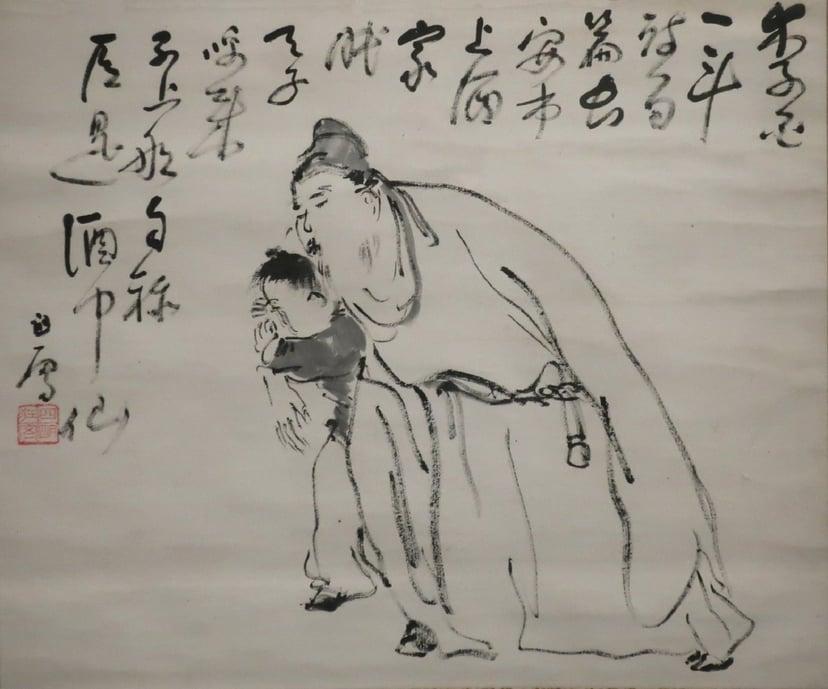 李白
一斗
詩百
篇長
安市
上酒
家
眠
天子
呼來
不上船自稱
臣是酒中仙